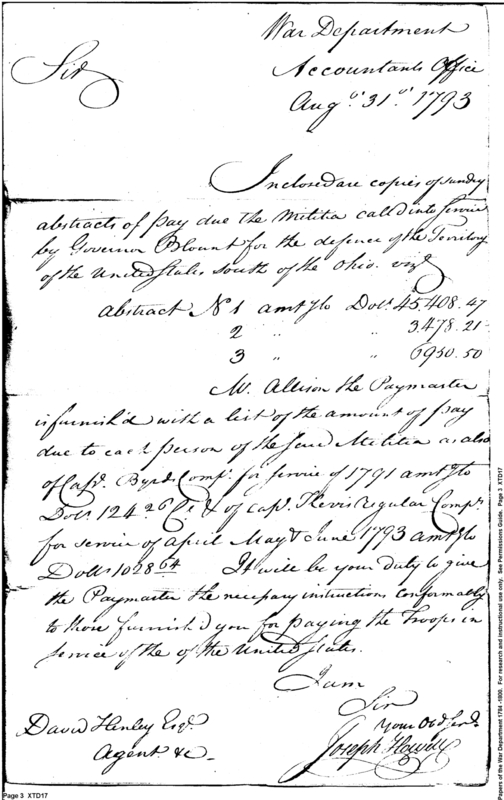 War Department
Sir
Accountants Office
Augt. 31st. 1793
Inclosed are copies of sundry
abstracts of pay due the Militia call'd into Service
by Governor Blount for the defence of the Territory
of the United States south of the Ohio. vizt
Abstract No 1 amtg to Dolrs. 45.408.47
2 " " 3.478.21
3 " " 6950.50
Mr. Allison the Paymaster
is furnish'd with a list of the amount of pay
due to each person of the said Militia as also
of Capt. Byrds Compy. for service of 1791 amtg to
Dolrs. 124 26 Cs & of Capt. Regular Compy.
for service of April May & June 1793 amtg to
Dolls 1028 64 It will be your duty to give
the Paymaster the necessary instructions conformably
to those furnish'd you for paying the Troops in
Service of the of the United States.
I am
Sir
Your Obd Servt.
David Henley Esqr.
Joseph Howell
Agent &c -
Page 3 XTD17
Papers of the War Department 1784-1800. For research and instructional use only. See Permissions Guide. Page 3 XTD17